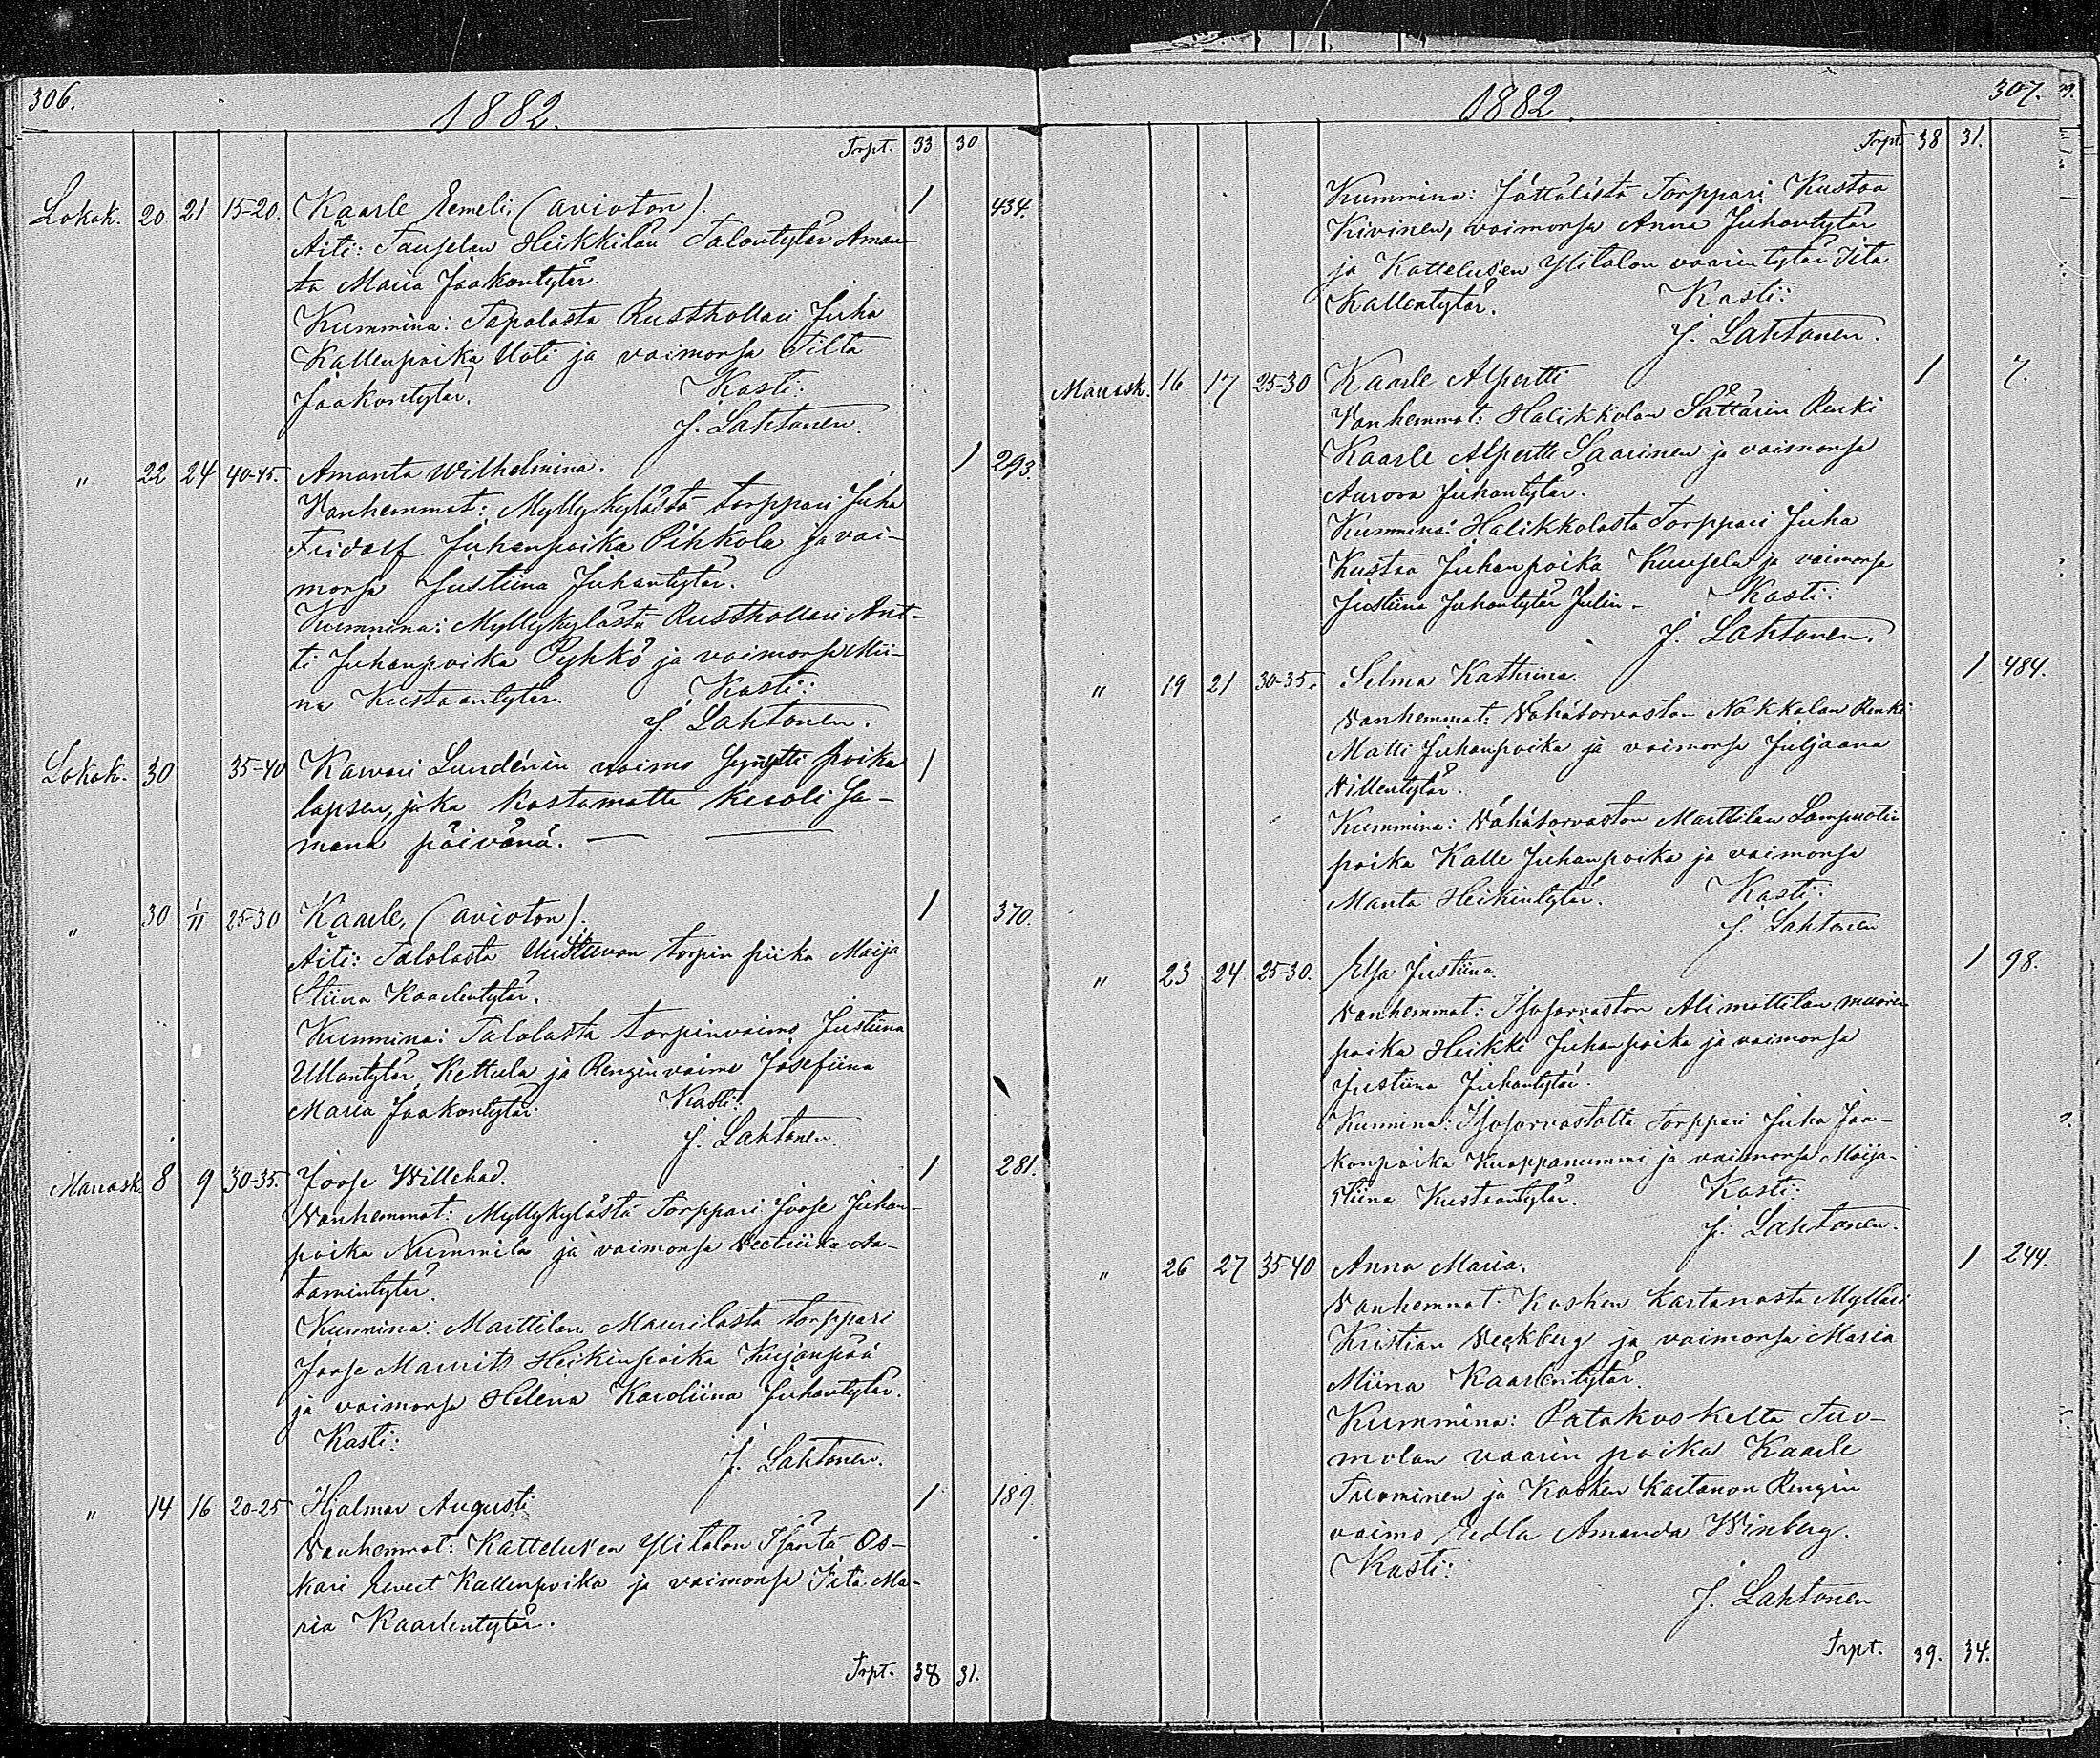 306.
1882.
Trpt. 33 30
Lokak. 20 21 15-20. Kaarle Eemeli, (avioton). 1 434.
Äiti: Tauselan Heikkilän Talontytär Aman-
ta Maria Jaakontytär.
Kummina: Tapalasta Rusthollari Juha
Kallenpoika Uoti ja vaimonsa Tilta
Jaakontytär. Kasti:
J. Lahtonen.
" 22 24 40-45. Amanta Wilhelmina. 1 293.
Vanhemmat: Myllykylästä torppari Juha
Fridolf Juhanpoika Pihkola ja vai-
monsa Justiina Juhantytär.
Kummina: Myllykylästä Rusthollari Ant-
ti Juhanpoika Pyhkö ja vaimonsa Mii-
na Kustaantytär. Kasti:
J. Lahtonen.
Lokak. 30 35-40 Karvari Lundénin vaimo synytti poika 1
lapsen, joka kastamatta kuoli sa-
mana päivänä.
" 30 1/11 25-30 Kaarle, (avioton). 1 370.
Äiti: Talolasta Uudentuvan torpin piika Maija
Stiina Kaarlentytär.
Kummina: Talolasta torpinvaimo Justiina
Ullantytär Kettula ja Renginvaimo Josefiina
Maria Jaakontytär. Kasti:
J. Lahtonen
Marrask. 8 9 30-35. Joose Willehad. 1 281.
Vanhemmat: Myllykylästä torppari Joose Juhan-
poika Nummila ja vaimonsa Vectriika Aa-
tamintytär.
Kummina: Marttilan Maurilasta torppari
Joose Maurits Heikinpoika Kujanpää
ja vaimonsa Helena Karoliina Juhantytär.
Kasti:
J. Lahtonen.
" 14 16 20-25 Hjalmar Augusti 1 189
Vanhemmat: Kattelus'en Ylitalon Isäntä Os-
kari Evert Kallenpoika ja vaimonsa Iita Ma-
ria Kaarlentytär.
Trpt. 38 31.
1882.
307.
Trpt. 38 31.
Kummina: Jättälästä Torppari Kustaa
Kivinen, vaimonsa Anna Juhantytär
ja Kattelus'en Ylitalon vaarintytär Iita
Kallentytär. Kasti:
J. Lahtonen.
Marrask. 16 17 25-30 Kaarle Alpertti 1 7.
Vanhemmat: Halikkolan Sättärin Renki
Kaarle Alpertti Saarinen ja vaimonsa
Aurora Juhantytär.
Kummina: Halikkolasta Torppari Juha
Kustaa Juhanpoika Kuusela ja vaimonsa
Justiina Juhantytär Julin. Kasti:
J. Lahtonen.
" 19 21 30-35. Selma Kathriina. 1 484.
Vanhemmat: Vähäsorvaston Nakkalan Renki
Matti Juhanpoika ja vaimonsa Juljaana
Villentytär.
Kummina: Vähäsorvaston Marttilan Lampuotin
poika Kalle Juhanpoika ja vaimonsa
Manta Heikintytär. Kasti:
J. Lahtonen
" 23 24 25-30. Elsa Justiina. 1 98.
Vanhemmat: Isosorvaston Alimattilan muorin
poika Heikki Juhanpoika ja vaimonsa
Justiina Juhantytär.
Kummina: Isosorvastolta torppari Juha Jaa-
konpoika Kuoppanummi ja vaimonsa Maija-
Stiina Kustaantytär. Kasti:
J. Lahtonen.
" 26 27 35-40 Anna Maria. 1 244.
Vanhemmat: Kosken Kartanosta Mylläri
Kristian Veckberg ja vaimonsa Maria
Miina Kaarlentytär.
Kummina: Patakoskelta Tuo-
molan vaarin poika Kaarle
Tuominen ja Kosken Kartanon Rengin
vaimo Eedla Amanda Winberg.
Kasti:
J. Lahtonen
Trpt. 39. 34.